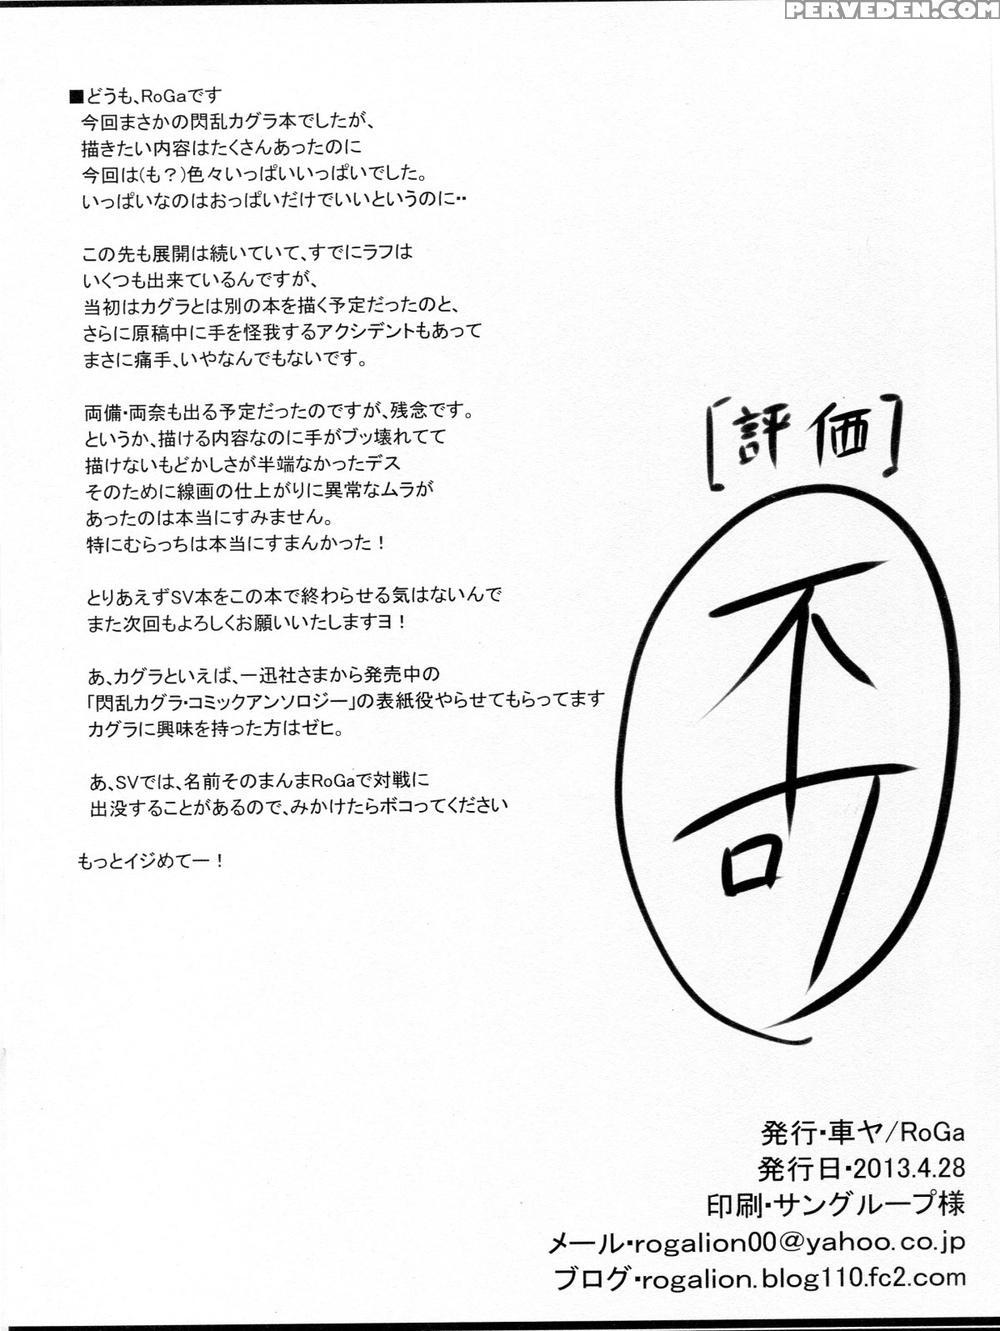 PERVEDEN.COM
■どうも、RoGaです
今回まさかの閃乱カグラ本でしたが、
描きたい内容はたくさんあったのに
今回は(も?)色々いっぱいいっぱいでした。
いっぱいなのはおっぱいだけでいいというのに‥
この先も展開は続いていて、すでにラフは
いくつも出来ているんですが、
当初はカグラとは別の本を描く予定だったのと、
さらに原稿中に手を怪我するアクシデントもあって
まさに痛手、いやなんでもないです。
両備・両奈も出る予定だったのですが、残念です。
というか、描ける内容なのに手がブッ壊れてて
描けないもどかしさが半端なかったデス
そのために線画の仕上がりに異常なムラが
あったのは本当にすみません。
特にむらっちは本当にすまんかった!
とりあえずSV本をこの本で終わらせる気はないんで
また次回もよろしくお願いいたしますヨ!
あ、カグラといえば、一迅社さまから発売中の
「閃乱カグラ・コミックアンソロジー」の表紙役やらせてもらってます
カグラに興味を持った方はゼヒ。
あ、SVでは、名前そのまんまRoGaで対戦に
出没することがあるので、みかけたらボコってください
もっとイジめてー!
[評価]
不可
発行・車ヤ/RoGa
発行日・2013.4.28
印刷・サングループ様
メール・rogalion00@yahoo.co.jp
ブログ・rogalion.blog110.fc2.com